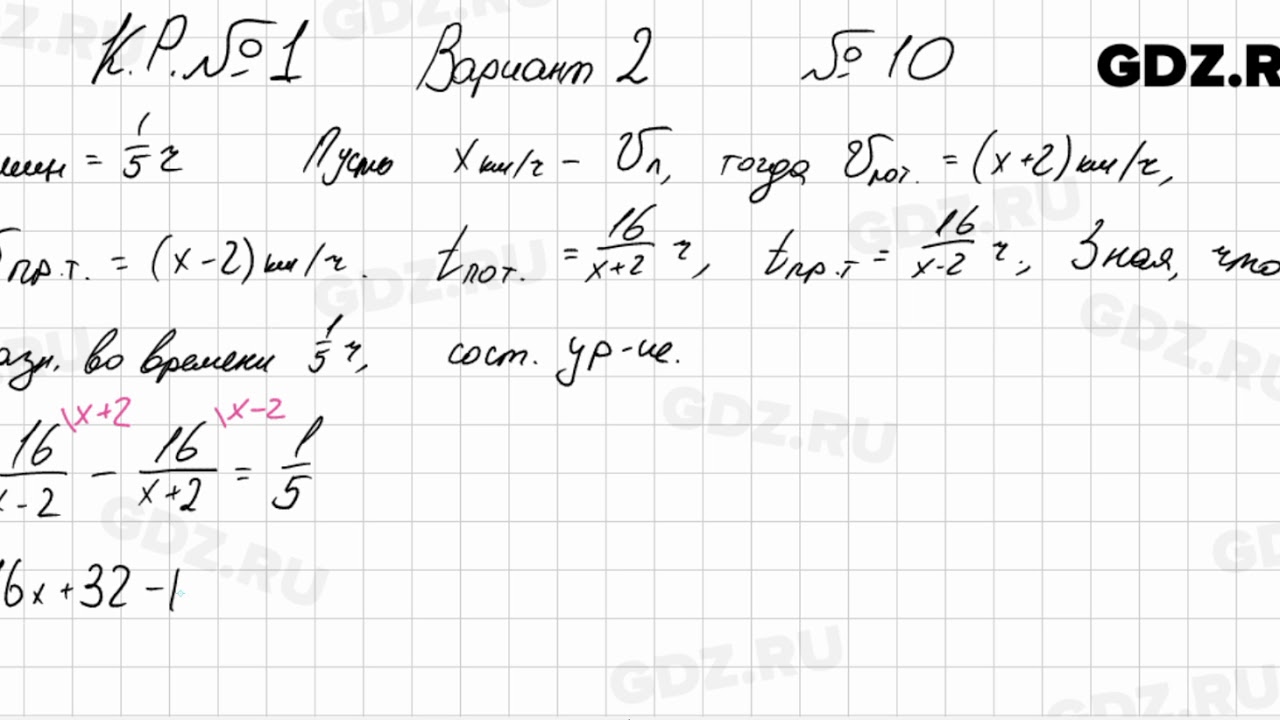 К.Р. №1 Вариант 2 №10 GDZ.R
мин = 1/5 ч Пусть x км/ч - Vл, тогда Vпот. = (x+2) км/ч,
Vпр.т. = (x-2) км/ч. tпот. = 16/(x+2) ч, tпр.т = 16/(x-2) ч, Зная, что
азн. во времени 1/5 ч, сост. ур-ие.
\x+2 \x-2
16/(x-2) - 16/(x+2) = 1/5
16x+32-1